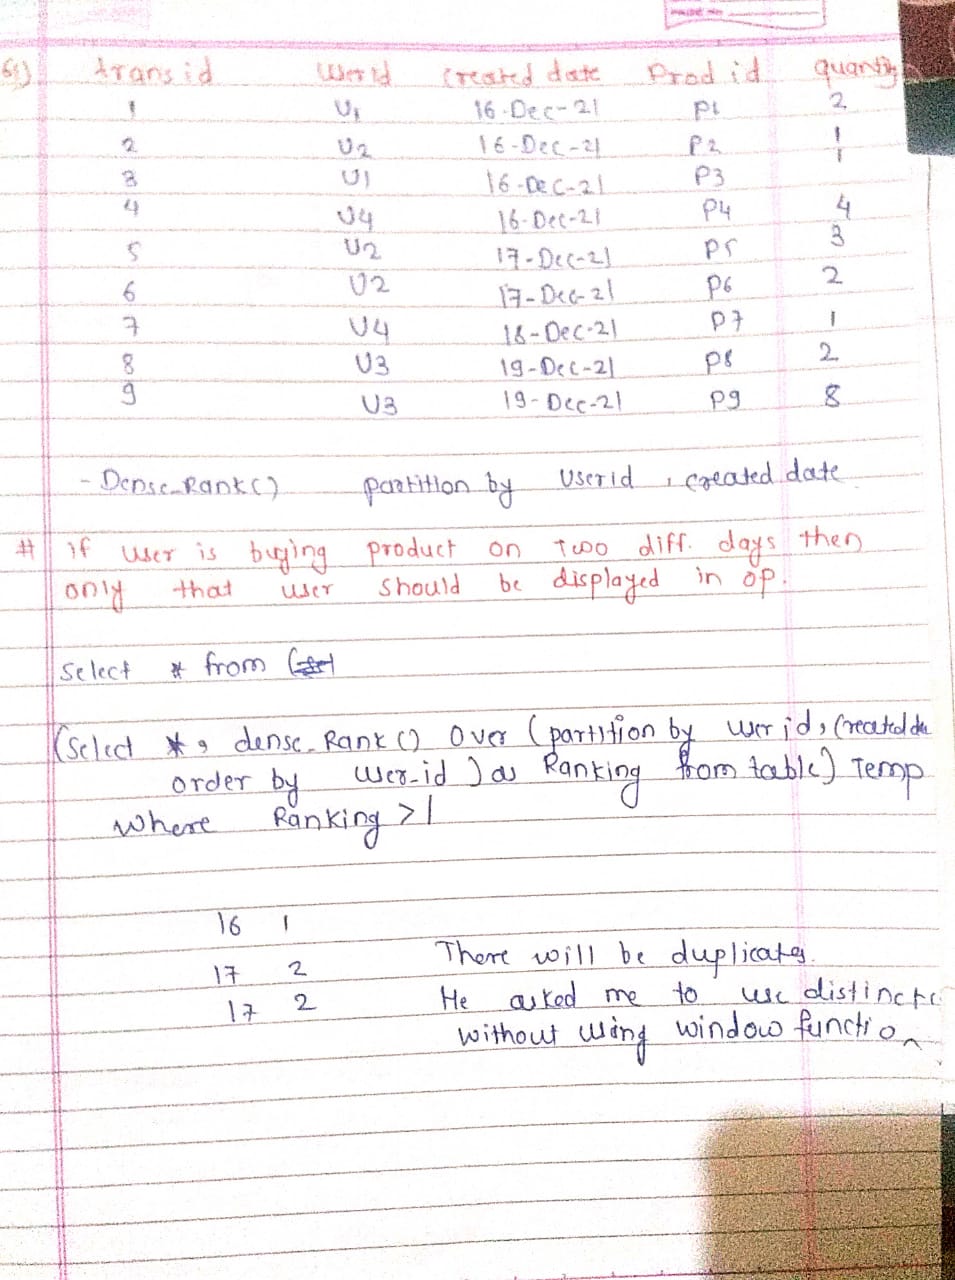 trans id user id created date Prod id quantity
1 U1 16-Dec-21 P1 2
2 U2 16-Dec-21 P2 1
3 U1 16-Dec-21 P3 1
4 U4 16-Dec-21 P4 4
5 U2 17-Dec-21 P5 3
6 U2 17-Dec-21 P6 2
7 U4 18-Dec-21 P7 1
8 U3 19-Dec-21 P8 2
9 U3 19-Dec-21 P9 8
- Dense_Rank() partition by userid, created date
# if user is buying product on two diff. days then
only that user should be displayed in op.
Select * from (
(Select *, dense_Rank() over (partition by user id, created da
order by user_id) as Ranking from table) Temp
where Ranking > 1
16 1
17 2 There will be duplicates.
17 2 He asked me to use distinct
without using window function